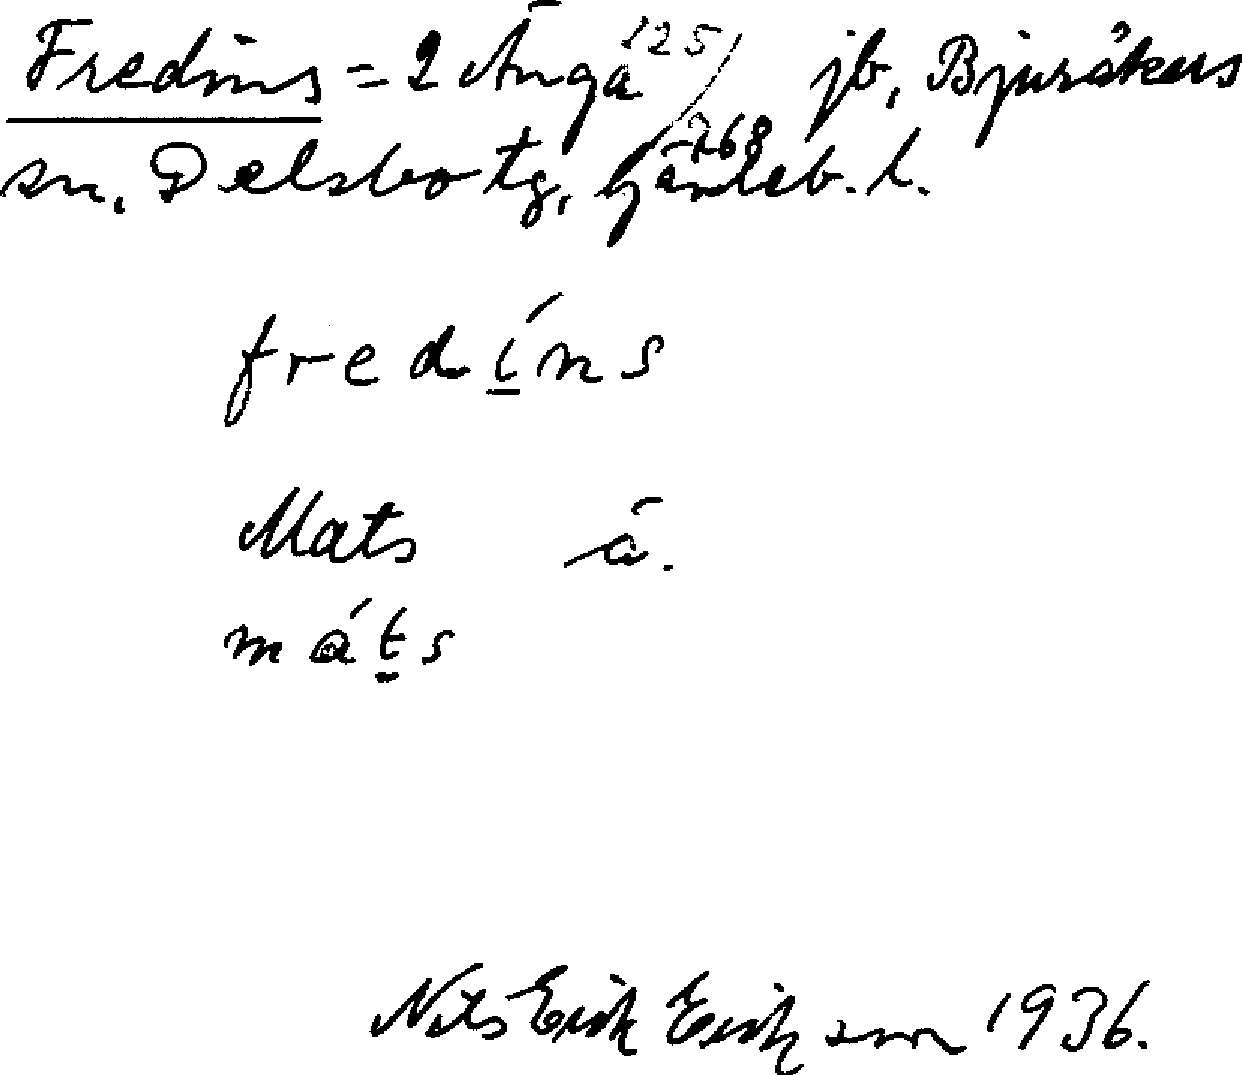 Fredins = 2 Änga 125/268 jb, Bjuråkers
sn, Delsbo tg, Gävleb. l.
fredíns
Mats ā.
máts
Nils Erik Eriksson 1936.